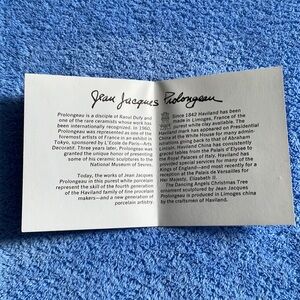 Jean Jacques Prolongeau
Prolongeau is a disciple of Raoul Dufy and
one of the rare ceramists whose work has
been internationally recognized. In 1960,
Prolongeau was represented as one of the
foremost artists of France in an exhibit in
Tokyo, sponsored by L'Ecole de Paris—Arts
Decoratif. Three years later, Prolongeau was
granted the unique honor of presenting
some of his ceramic sculptures to the
National Museum of Sevres.
Today, the works of Jean Jacques
Prolongeau in this purest white porcelain
represent the skill of the fourth generation
of the Haviland family of fine porcelain
makers—and a new generation of
porcelain artistry.
Since 1842 Haviland has been
made in Limoges, France of the
purest white clay available. The
Haviland mark has appeared on Presidential
China at the White House for many admin-
istrations going back to that of Abraham
Lincoln. From the Palais d'Elysée to
the Royal Palaces of Italy, Haviland has
provided special services for many of the
Kings of England—and most recently for a
reception at the Palais de Versailles for
Her Majesty, Elizabeth II.
The Dancing Angels Christmas Tree
ornament sculptured by Jean Jacques
Prolongeau is produced in Limoges china
by the craftsmen of Haviland.